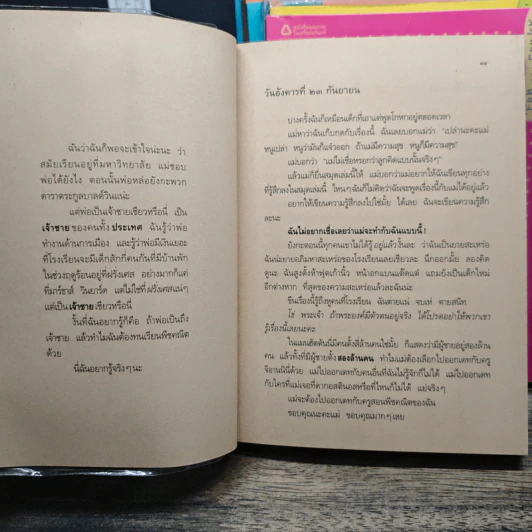 ฉันว่าฉันก็พอจะเข้าใจน่ะนะ ว่า
สมัยเรียนอยู่ที่มหาวิทยาลัย แม่ชอบ
พ่อได้ยังไง ตอนนั้นพ่อหล่อยังกะพวก
ดาราตระกูลบาลด์วินแน่ะ
แต่พ่อเป็นเจ้าชายเชียวหรือนี่ เป็น
เจ้าชายของคนทั้ง ประเทศ ฉันรู้ว่าพ่อ
ทำงานด้านการเมือง และรู้ว่าพ่อมีเงินเยอะ
ที่โรงเรียนจะมีเด็กสักกี่คนกันที่มีบ้านพัก
ในช่วงฤดูร้อนอยู่ที่ฝรั่งเศส อย่างมากก็แค่
ที่มาร์ธาส์ วินยาร์ด แต่ไม่ใช่ที่ ฝรั่งเศส แน่ๆ
แต่เป็น เจ้าชาย เชียวหรือนี่
งั้นที่ฉันอยากรู้ก็คือ ถ้าพ่อเป็นถึง
เจ้าชาย แล้วทำไมฉันต้องทนเรียนพีชคณิต
ด้วย
นี่ฉันอยากรู้จริงๆ นะ
๑๑
วันอังคารที่ ๒๓ กันยายน
บางครั้งฉันก็เหมือนเด็กที่เอาแต่พูดโกหกอยู่ตลอดเวลา
แม่หาว่าฉันเก็บกดกับเรื่องนี้ ฉันเลยบอกแม่ว่า "เปล่านะคะแม่
หนูเปล่า หนูว่ามันก็แจ๋วออก ถ้าแม่มีความสุข หนูก็มีความสุข"
แม่บอกว่า "แม่ไม่เชื่อหรอกว่าลูกคิดแบบนั้นจริงๆ"
แล้วแม่ก็ยื่นสมุดเล่มนี้ให้ แม่บอกว่าแม่อยากให้ฉันเขียนทุกอย่าง
ที่รู้สึกลงในสมุดเล่มนี้ ไหนๆ ฉันก็ไม่คิดว่าฉันจะพูดเรื่องนี้กับแม่ได้อยู่แล้ว
อยากให้เขียนความรู้สึกลงไปใช่มั้ย ได้เลย ฉันจะเขียนความรู้สึก
ละนะ
ฉันไม่อยากเชื่อเลยว่าแม่จะทำกับฉันแบบนี้ !
ยังกะตอนนี้ทุกคนเขาไม่ได้รู้ อยู่แล้ว งั้นละ ว่าฉันเป็นยายสะเหร่อ
ฉันน่ะยายอภิมหาสะเหร่อของโรงเรียนเลยเชียวละ นึกออกมั้ย ลองคิด
ดูนะ ฉันสูงตั้งห้าฟุตเก้านิ้ว หน้าอกแบนแต๊ดแต๋ แถมยังเป็นเด็กใหม่
อีกต่างหาก ที่สุดของความสะเหร่อแล้วละฉันน่ะ
ขืนเรื่องนี้รู้ถึงหูคนที่โรงเรียน ฉันตายแน่ จบเห่ ตายสนิท
โธ่ พระเจ้า ถ้าพระองค์มีตัวตนอยู่จริง ได้โปรดอย่าให้พวกเขา
รู้เรื่องนี้เลยนะคะ
ในแมนฮัตตันนี่มีคนตั้งสี่ล้านคนใช่มั้ย ก็แสดงว่ามีผู้ชายอยู่สองล้าน
คน แล้วทั้งที่มีผู้ชายตั้ง สองล้านคน ทำไมแม่ต้องเลือกไปออกเดทกับครู
จิอานนินี่ด้วย แม่ไปออกเดทกับคนอื่นที่ฉันไม่รู้จักก็ไม่ได้ แม่ไปออกเดท
กับใครที่แม่เจอที่ดากอสตินอสหรือที่ไหนก็ไม่ได้ แย่จริงๆ
แม่จะต้องไปออกเดทกับครูสอนพีชคณิตของฉัน
ขอบคุณนะคะแม่ ขอบคุณมากๆ เลย